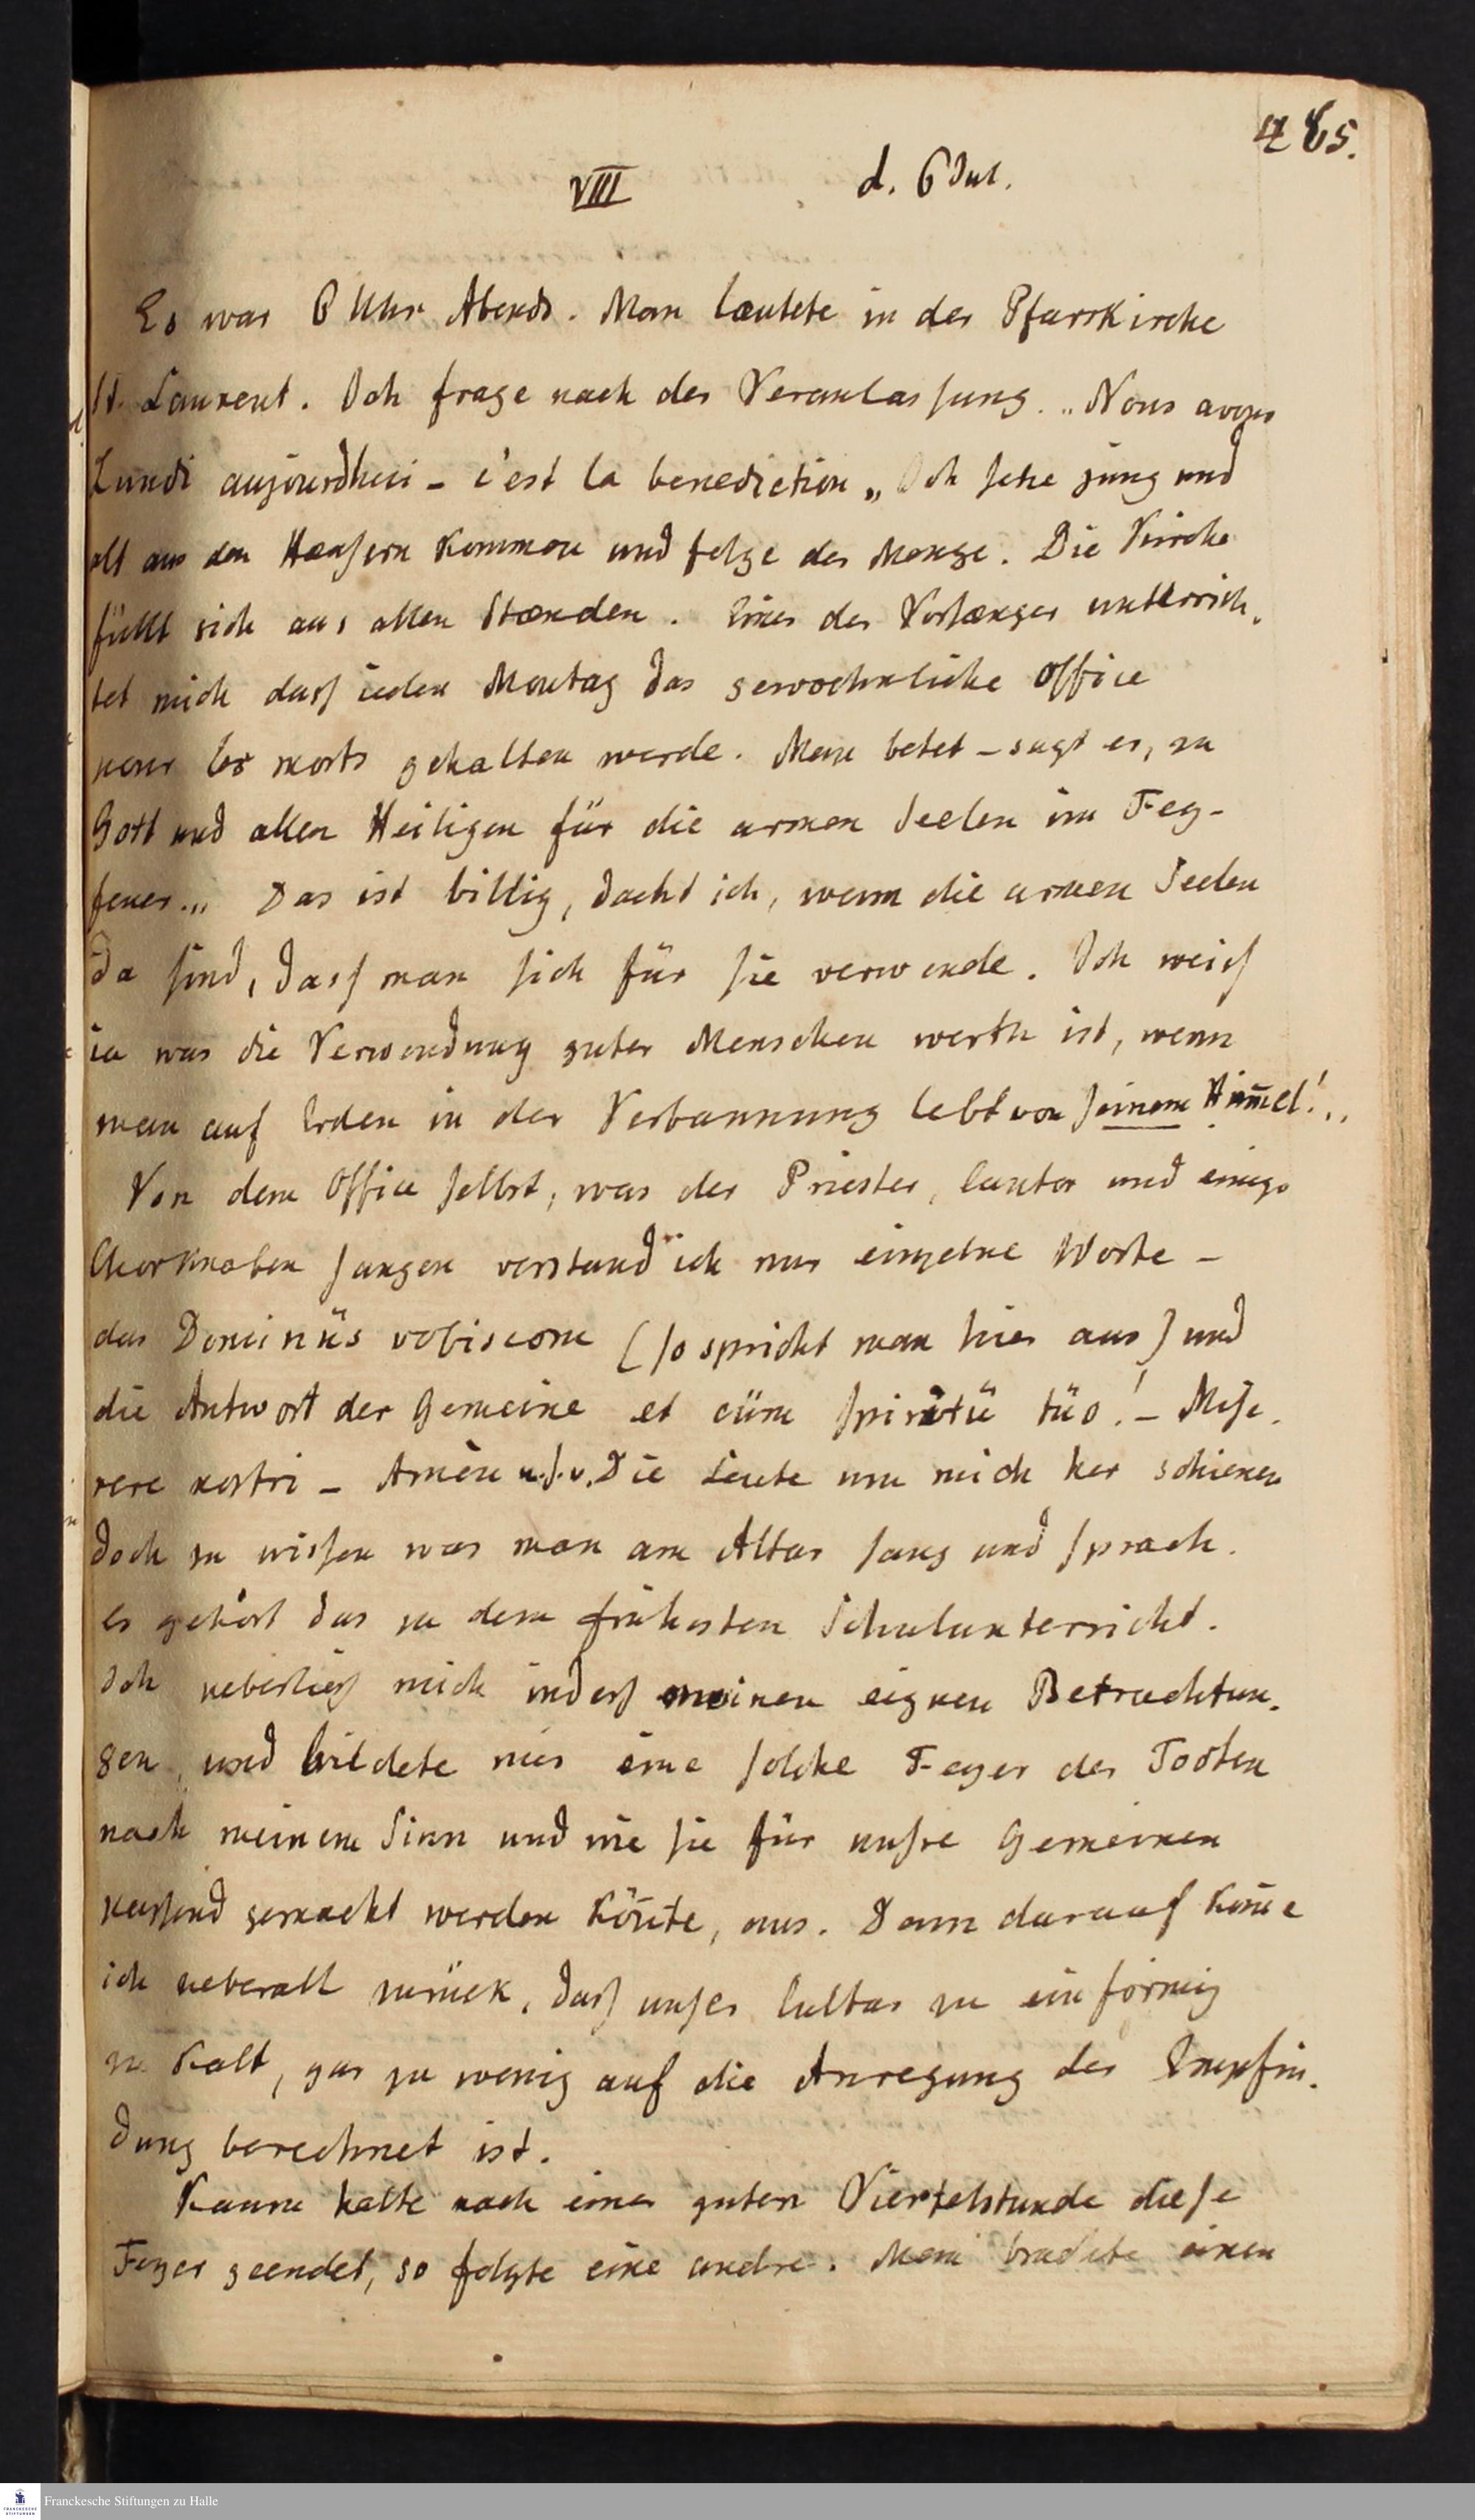 485.
VIII d. 6 Jul.
Es war 6 Uhr Abends. Man læutete in der Pfarrkirche
St. Laurent. Ich frage nach der Veranlassung. „Nous avons
Lundi aujourdhui – c'est la benediction„ Ich sehe jung und
alt aus den Hæusern kommen und folge der Menge. Die Kirche
füllt sich aus allen Stænden. Einer der Vorsænger unterrich-
tet mich dass ieden Montag das gewoehnliche Office
pour les morts gehalten werde. Man betet – sagt er, zu
Gott und allen Heiligen für die armen Seelen im Feg-
feuer.„ Das ist billig, dacht ich, wenn die armen Seelen
da sind, dass man sich für sie verwende. Ich weiss
ia was die Verwendung guter Menschen werth ist, wenn
man auf Erden in der Verbannung lebt von seinem Him̅el!..
Von dem Office selbst, was der Priester, Cantor und einige
Chorknaben sangen verstand ich nur einzelne Worte –
das Dominüs vobiscom (so spricht man hier aus) und
die Antwort der Gemeine et cüm spiritü tüo! – Mise-
rere nostri – Amèn u.s.w. Die Leute um mich her schienen
doch zu wissen was man am Altar sang und sprach.
Es gehört das zu dem frühesten Schulunterricht.
Ich ueberliess mich indess meinen eignen Betrachtun-
gen, und bildete mir eine solche Feyer der Todten
nach meinem Sinn und wie sie für unsre Gemeinen
passend gemacht werden kön̅te, aus. Denn darauf kom̅e
ich ueberall zurück, dass unser Cultus zu einförmig
zu kalt, gar zu wenig auf die Anregung der Empfin-
dung berechnet ist.
Kaum hatte nach einer guten Viertelstunde diese
Feyer geendet, so folgte eine andre. Man brachte einen
Franckesche Stiftungen zu Halle